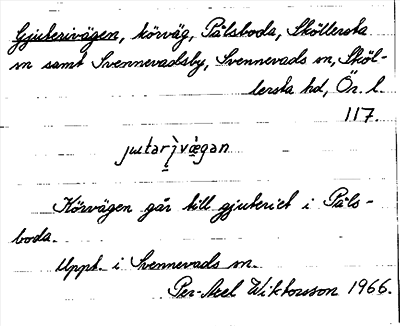 Gjuterivägen, körväg, Pålsboda, Sköllersta
sn samt Svennevadsby, Svennevads sn, Sköl-
lersta hd, Ör. l.
117.
Körvägen går till gjuteriet i Påls-
boda.
Uppt. i Svennevads sn.
Per-Axel Wiktorsson 1966.